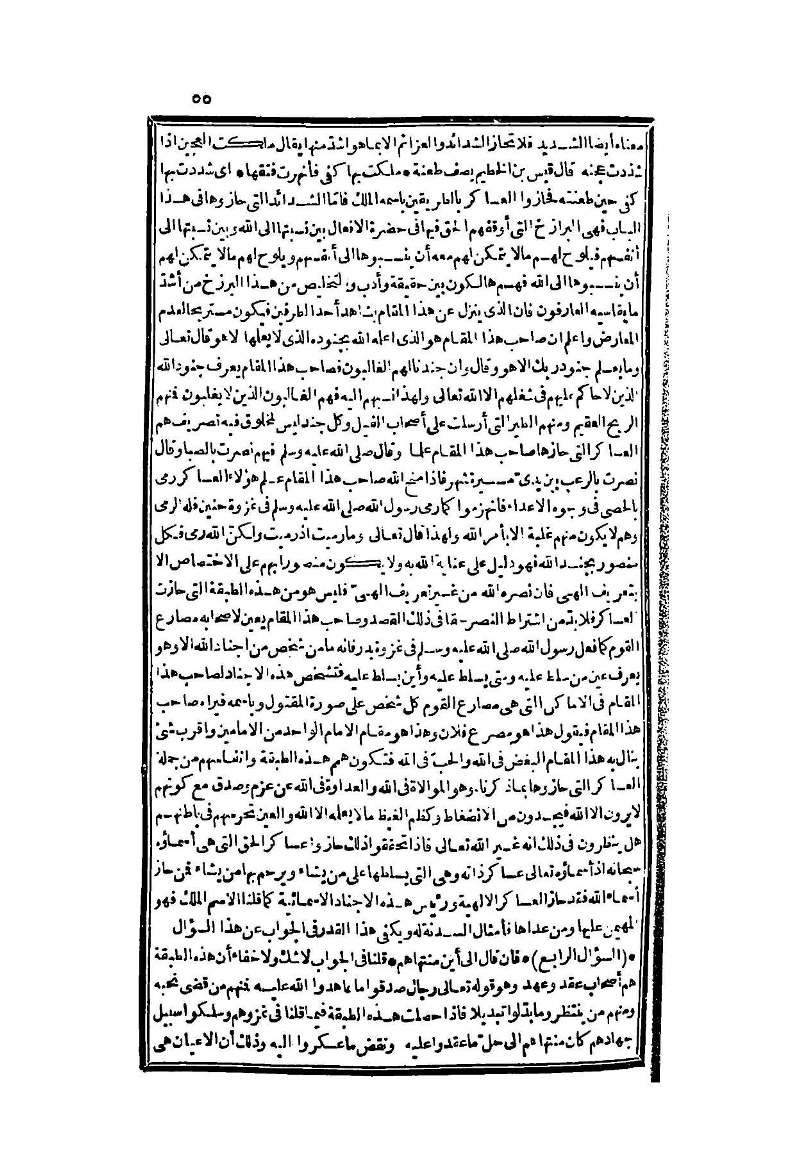 ٥٥
معناه أيضا الشديد فلا تحاز الشدائد والعزائم الا بما هو أشد منها يقال ملكت العجين اذا
شددت عجنه قال قيس بن الخطيم يصف طعنة * ملكت بها كفى فأنهرت فتقها * اى شددت بها
كفى حين طعنته فحازوا العساكر بالطريقين باسمه الملك فاما الشدائد التى حازوها فى هذا
الباب فهى البرازخ التى أوقفهم الحق فيها فى حضرة الافعال بين نسبتها الى الله وبين نسبتها الى
أنفسهم فيلوح لهم مالا يتمكن لهم معه أن ينسبوها الى أنفسهم ويلوح لهم مالا يتمكن لهم
أن ينسبوها الى الله فهم هالكون بين حقيقة وأدب والتخليص من هذا البرزخ من أشد
ما يقاسيه العارفون فان الذى ينزل عن هذا المقام يشاهد أحد الطرفين فيكون مستريحا لعدم
المعارض واعلم ان صاحب هذا المقام هو الذى اعلمه الله بجنوده الذى لا يعلمها الا هو قال تعالى
وما يعلم جنود ربك الا هو وقال وان جندنا لهم الغالبون فصاحب هذا المقام يعرف جنود الله
الذين لا حاكم عليهم فى شغلهم الا الله تعالى ولهذا نسبهم اليه فهم الغالبون الذين لا يغلبون فنهم
الريح العقيم ومنهم الطير التى أرسلت على أصحاب الفيل وكل جند ليس لمخلوق فيه تصريف هم
العساكر التى حازها صاحب هذا المقام علما وقال صلى الله عليه وسلم فيهم نصرت بالصبا وقال
نصرت بالرعب بين يدى مسيرة شهر فاذا منح الله صاحب هذا المقام علم هؤلاء العساكر رمى
بالحصى فى وجوه الاعداء فانهزموا كما رمى رسول الله صلى الله عليه وسلم فى غزوة حنين فله الرمى
وهم لا يكون منهم غلبة الا بأمر الله ولهذا قال تعالى وما رميت اذ رميت ولكن الله رمى فكل
منصور بجند الله فهو دليل على عناية الله به ولا يكون منصورا بهم على الاختصاص الا
بتعريف الهى فان نصره الله من غير تعريف الهى فليس هو من هذه الطبقة التى حازت
العساكر فلا بد من اشتراط النصرة فى ذلك القصد وصاحب هذا المقام يعين لاصحابه مصارع
القوم كما فعل رسول الله صلى الله عليه وسلم فى غزوة بدر فانه ما من شخص من اجناد الله الا وهو
يعرف عين من سلط عليه ومتى يسلط عليه وأين يسلط عليه فتشخص هذه الاجناد لصاحب هذا
المقام فى الاماكن التى هى مصارع القوم كل شخص على صورة المقتول وباسمه فيراه صاحب
هذا المقام فيقول هذا هو مصرع فلان وهذا هو مقام الامام الواحد من الامامين واقرب شئ
ينال به هذا المقام البغض فى الله والحب فى الله فتكون همم هذه الطبقة وانفاسهم من جملة
العساكر التى حازوها بما ذكرنا وهو الموالاة فى الله والعداوة فى الله عن عزم وصدق مع كونهم
لا يرون الا الله فيجدون من الانضغاط وكظم الغيظ ما لا يعلمه الا الله والعين تحرسهم فى باطنهم
هل ينظرون فى ذلك انه غير الله تعالى فاذا تحققوا ذلك حازوا عساكر الحق التى هى أسماؤه
سبحانه اذ أسماؤه تعالى عساكر ذاته وهى التى يسلطها على من يشاء ويرحم بها من يشاء فمن حاز
أسماء الله فقد حاز العساكر الالهية ورئيس هذه الاجناد الاسمائية كما قلنا الاسم الملك فهو
المهيمن عليها ومن عداها فأمثال السدنة له ويكفى هذا القدر فى الجواب عن هذا السؤال
* (السؤال الرابع) * فان قال الى أين منتهاهم * قلنا فى الجواب لا شك ولا خفاء أن هذه الطبقة
هم أصحاب عقد وعهد وهو قوله تعالى رجال صدقوا ما عاهدوا الله عليه فنهم من قضى نحبه
ومنهم من ينتظر وما بدلوا تبديلا فاذا حصلت هذه الطبقة فيما قلنا فى غزوهم وسلكوا سبيل
جهادهم كان منتهاهم الى حل ما عقدوا عليه ونقض ما عسكروا اليه وذلك أن الاعيان هى